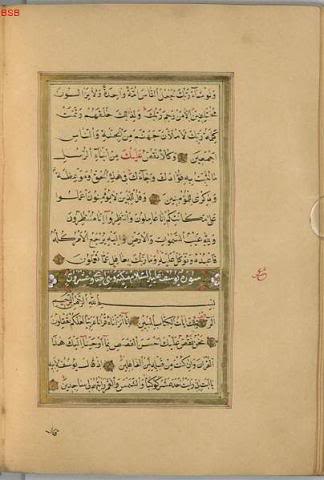 BSB
وَلَوْ شَاءَ رَبُّكَ لَجَعَلَ النَّاسَ اُمَّةً وَاحِدَةً وَلَا يَزَالُونَ
مُخْتَلِفِينَ اِلَّا مَنْ رَحِمَ رَبُّكَ وَلِذٰلِكَ خَلَقَهُمْ وَتَمَّتْ
كَلِمَةُ رَبِّكَ لَاَمْلَاَنَّ جَهَنَّمَ مِنَ الْجِنَّةِ وَالنَّاسِ
اَجْمَعِينَ وَكُلًّا نَقُصُّ عَلَيْكَ مِنْ اَنْبَاءِ الرُّسُلِ
مَا نُثَبِّتُ بِهِ فُؤَادَكَ وَجَاءَكَ فِي هٰذِهِ الْحَقُّ وَمَوْعِظَةٌ
وَذِكْرٰى لِلْمُؤْمِنِينَ وَقُلْ لِلَّذِينَ لَا يُؤْمِنُونَ اعْمَلُوا
عَلٰى مَكَانَتِكُمْ اِنَّا عَامِلُونَ وَانْتَظِرُوا اِنَّا مُنْتَظِرُونَ
وَلِلّٰهِ غَيْبُ السَّمٰوَاتِ وَالْاَرْضِ وَاِلَيْهِ يُرْجَعُ الْاَمْرُ كُلُّهُ
فَاعْبُدْهُ وَتَوَكَّلْ عَلَيْهِ وَمَا رَبُّكَ بِغَافِلٍ عَمَّا تَعْمَلُونَ
سورة يوسف عليه السلام مكية وهي
بسم الله الرحمن الرحيم
الٓر تِلْكَ اٰيَاتُ الْكِتَابِ الْمُبِينِ اِنَّا اَنْزَلْنَاهُ قُرْاٰنًا عَرَبِيًّا لَعَلَّكُمْ تَعْقِلُونَ
نَحْنُ نَقُصُّ عَلَيْكَ اَحْسَنَ الْقَصَصِ بِمَا اَوْحَيْنَا اِلَيْكَ هٰذَا
الْقُرْاٰنَ وَاِنْ كُنْتَ مِنْ قَبْلِهِ لَمِنَ الْغَافِلِينَ اِذْ قَالَ يُوسُفُ لِاَبِيهِ
يَا اَبَتِ اِنِّي رَاَيْتُ اَحَدَ عَشَرَ كَوْكَبًا وَالشَّمْسَ وَالْقَمَرَ رَاَيْتُهُمْ لِي سَاجِدِينَ
قال